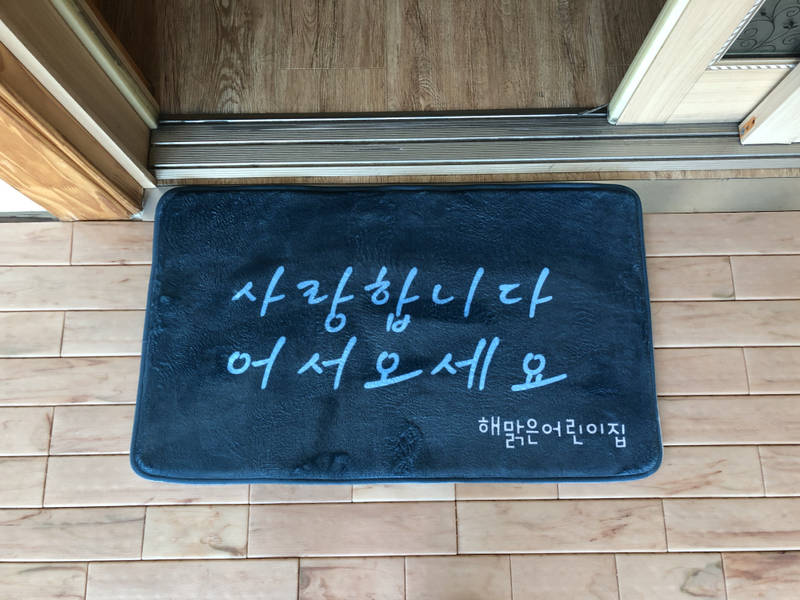 사랑합니다
어서오세요
해맑은어린이집